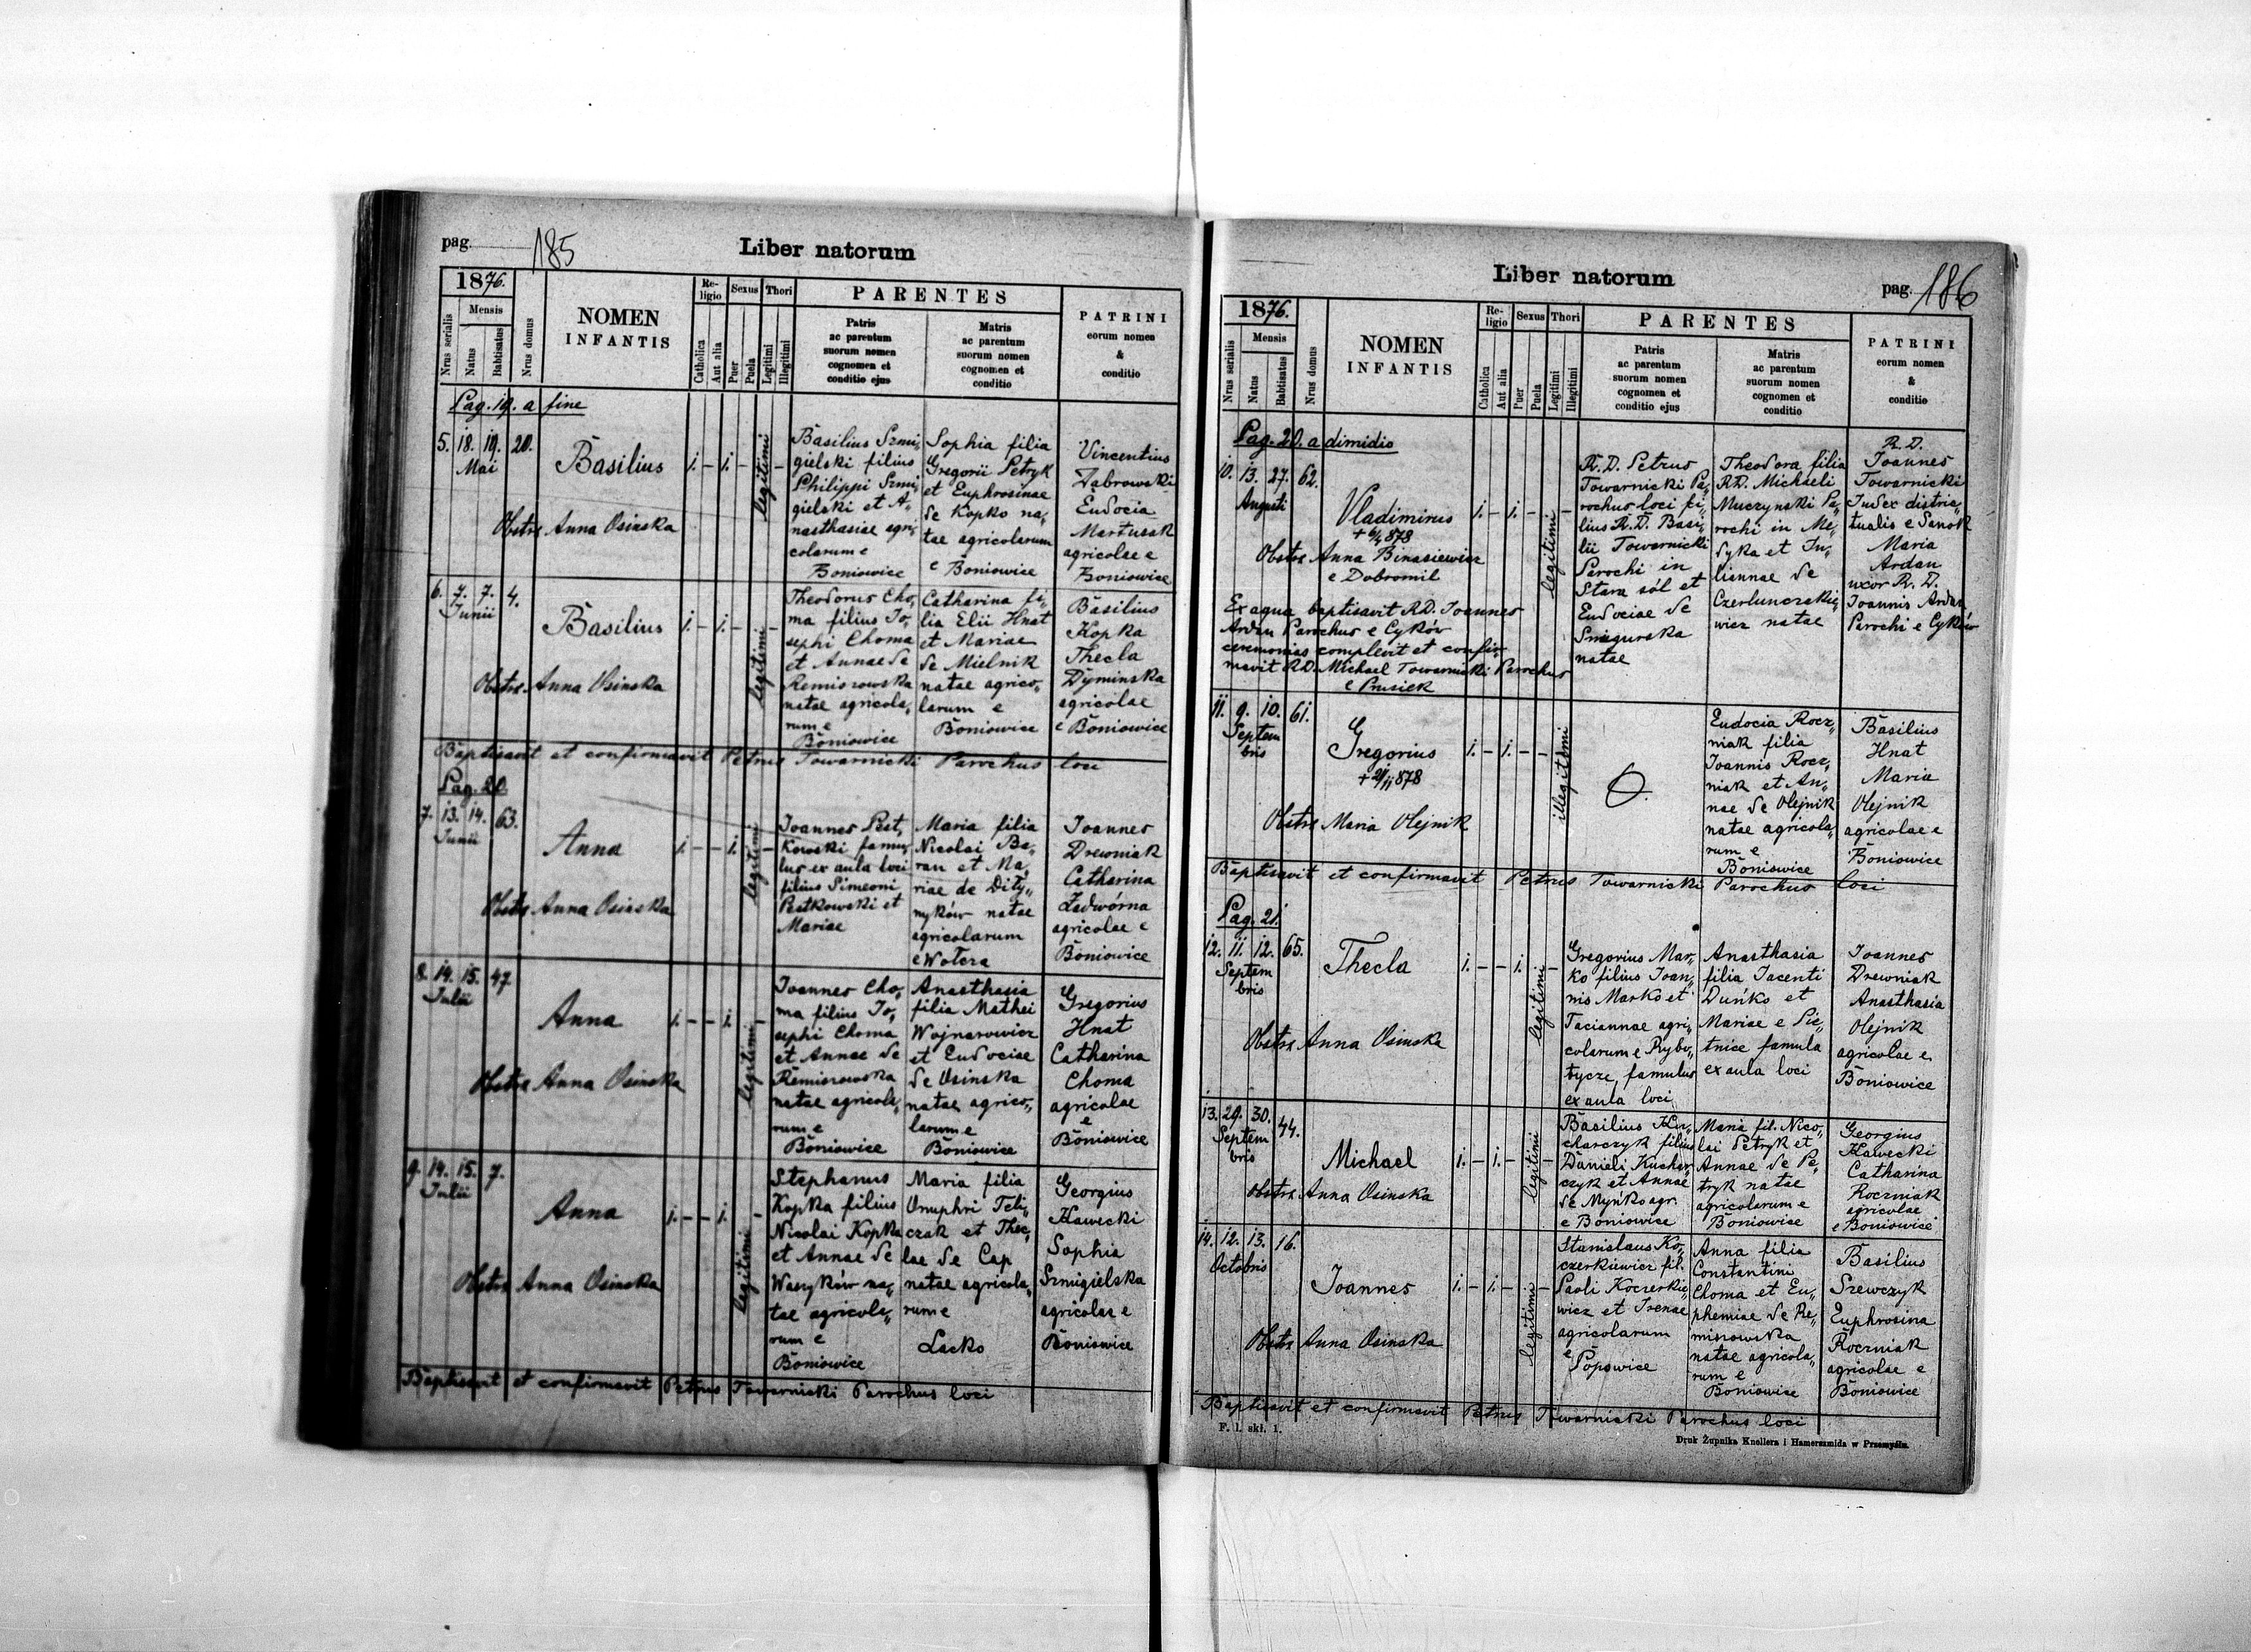 pag. 185
Liber natorum
1876.
Nrus serialis
Mensis
Natus
Babtisatus
Nrus domus
NOMEN
INFANTIS
Re-
ligio
Catholica
Aut alia
Sexus
Puer
Puela
Thori
Legitimi
Illegitimi
PARENTES
Patris
ac parentum
suorum nomen
cognomen et
conditio ejus
Matris
ac parentum
suorum nomen
cognomen et
conditio
PATRINI
eorum nomen
&
conditio
Pag. 19. a fine
5. 18. 19. 20.
Mai
Basilius
1. – 1. –
legitimi
–
Obstx Anna Osinska
Basilius Szmi„
gielski filius
Philippi Szmi„
gielski et A„
nasthasiae agri„
colarum e
Boniowice
Sophia filia
Gregorii Petryk
et Euphrosinae
de Kopko na„
tae agricolarum
e Boniowice
Vincentius
Dabrowski
Eudocia
Martusak
agricolae e
Boniowice
6. 7. 7. 4.
Junii
Basilius
1. – 1. –
legitimi
–
Obstx Anna Osinska
Theodorus Cho„
ma filius Jo„
sephi Choma
et Annae de
Remiszowska
natae agricola„
rum e
Boniowice
Catharina fi„
lia Elii Hnat
et Mariae
de Mielnik
natae agrico„
larum e
Boniowice
Basilius
Kopka
Thecla
Dyminska
agricolae
e Boniowice
Baptisavit et confirmavit Petrus Towarnicki Parochus loci
Pag. 20
7. 13. 14. 63.
Junii
Anna
1. – – 1.
legitimi
–
Obstx Anna Osinska
Joannes Pest„
kowski famu„
lus ex aula loci
filius Simeoni
Pestkowski et
Mariae
Maria filia
Nicolai Ba„
ran et Ma„
riae de Dity„
nyków natae
agricolarum
e Wolcza
Joannes
Drewniak
Catharina
Ładwórna
agricolae e
Boniowice
8. 14. 15. 47
Julii
Anna
1. – – 1.
legitimi
–
Obstx Anna Osinska
Joannes Cho„
ma filius Jo„
sephi Choma
et Annae de
Remiszowska
natae agricola„
rum e
Boniowice
Anasthasia
filia Mathei
Wojnarowicz
et Eudociae
de Osinska
natae agrico„
larum e
Boniowice
Gregorius
Hnat
Catharina
Choma
agricolae
e
Boniowice
9. 14. 15. 7.
Julii
Anna
1. – – 1.
legitimi
–
Obstx Anna Osinska
Stephanus
Kopka filius
Nicolai Kopka
et Annae de
Wasyków na„
tae agricola„
rum e
Boniowice
Maria filia
Onuphri Teli„
czak et Thec„
lae de Cap
natae agricola„
rum e
Lacko
Georgius
Kawecki
Sophia
Szmigielska
agricolae e
Boniowice
Baptisavit et confirmavit Petrus Towarnicki Parochus loci
Liber natorum
pag. 186
1876.
Nrus serialis
Mensis
Natus
Babtisatus
Nrus domus
NOMEN
INFANTIS
Re-
ligio
Catholica
Aut alia
Sexus
Puer
Puela
Thori
Legitimi
Illegitimi
PARENTES
Patris
ac parentum
suorum nomen
cognomen et
conditio ejus
Matris
ac parentum
suorum nomen
cognomen et
conditio
PATRINI
eorum nomen
&
conditio
Pag. 20. a dimidio
10. 13. 27. 62.
Augusti
Vladimirus
+ 6/4 878
1. – 1. –
legitimi
–
Obstx Anna Binasiewicz
e Dobromil
Ex aqua baptisavit R.D. Joannes
Ardan Parochus e Cyków
ceremonias complevit et confir„
mavit R.D. Michael Towarnicki Parochus
e Prusiek
R. D. Petrus
Towarnicki Pa„
rochus loci fi„
lius R.D. Basi„
lii Towarnicki
Parochi in
Stara sól et
Eudociae de
Smigurska
natae
Theodora filia
R.D. Michaeli
Muczynski Pa„
rochi in Me„
dyka et Ju„
liannae de
Czerlunczakie„
wicz natae
R. D.
Joannes
Towarnicki
Judex distric„
tualis e Sanok
Maria
Ardan
uxor R. D.
Joannis Ardan
Parochi e Cyków
11. 9. 10. 61.
Septem
bris
Gregorius
+ 21/11 878
1. – 1. – –
illegitimi
Obstx Maria Olejnik
O.
Eudocia Rocz„
niak filia
Joannis Rocz„
niak et An„
nae de Olejnik
natae agricola„
rum e
Boniowice
Basilius
Hnat
Maria
Olejnik
agricolae e
Boniowice
Baptisavit et confirmavit Petrus Towarnicki Parochus loci
Pag. 21.
12. 11. 12. 65.
Septem
bris
Thecla
1. – – 1.
legitimi
–
Obstx Anna Osinska
Gregorius Mar„
ko filius Joan„
nis Marko et
Taciannae agri„
colarum e Rybo„
tycze, famulus
ex aula loci
Anasthasia
filia Jacenti
Duńko et
Mariae e Sie„
tnice famula
ex aula loci
Joannes
Drewniak
Anasthasia
Olejnik
agricolae e
Boniowice
13. 29. 30. 44.
Septem
bris
Michael
1. – 1. –
legitimi
–
Obstx Anna Osinska
Basilius Ku„
charczyk filius
Danieli Kuchar
czyk et Annae
de Myńko agr.
e Boniowice
Maria fil. Nico„
lai Petryk et
Annae de Pe„
tryk natae
agricolarum e
Boniowice
Georgius
Kawecki
Catharina
Roczniak
agricolae
e Boniowice
14. 12. 13. 16.
Octobris
Joannes
1. – 1. –
legitimi
–
Obstx Anna Osinska
Stanislaus Ko„
czerkiewicz fil.
Paoli Koczerkie„
wicz et Irenae
agricolarum
e
Popowice
Anna filia
Constantini
Choma et Eu„
phemiae de Re„
miszowska
natae agricola„
rum e
Boniowice
Basilius
Szewczyk
Euphrosina
Roczniak
agricolae e
Boniowice
Baptisavit et confirmavit Petrus Towarnicki Parochus loci
F. l. skł. 1.
Druk Żupnika Knollera i Hamerszmida w Przemyślu.